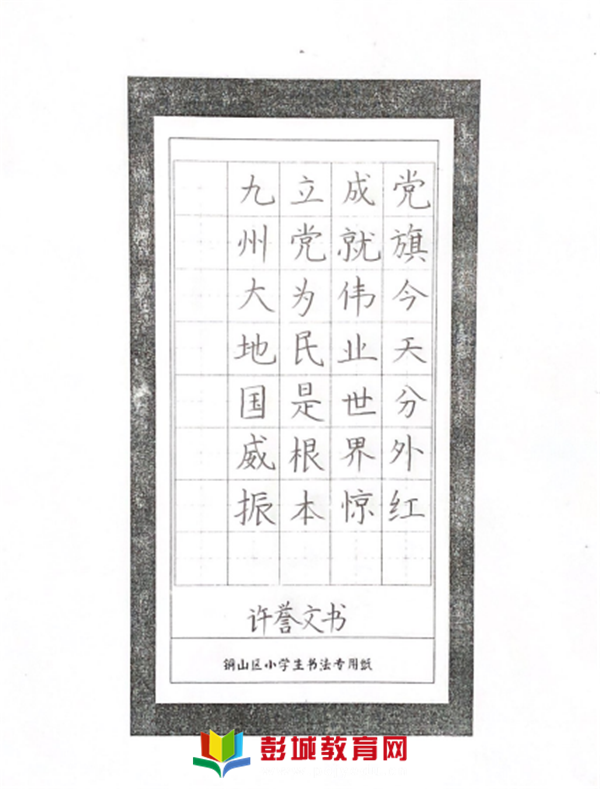 党旗今天分外红
成就伟业世界惊
立党为民是根本
九州大地国威振
许誉文书
铜山区小学生书法专用纸
彭城教育网